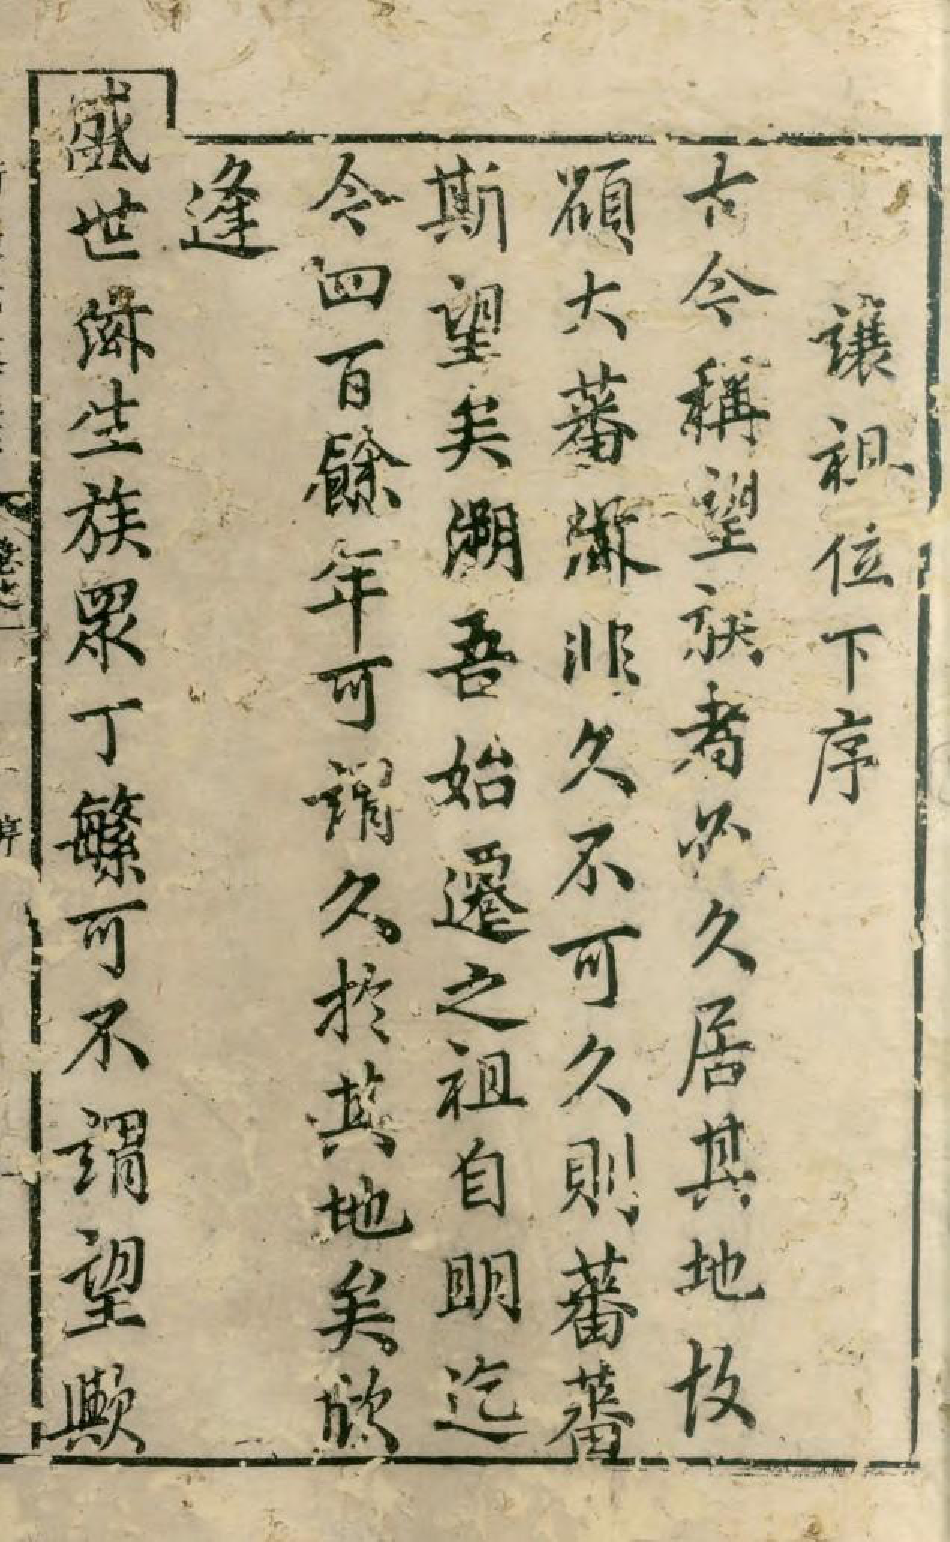 讓祖位下序
古今稱望族者必久居其地故
碩大蕃滋非久不可久則蕃蕃
斯望矣溯吾始遷之祖自明迄
今四百餘年可謂久於其地矣欣
逢
盛世滋生族眾丁繁可不謂望歟